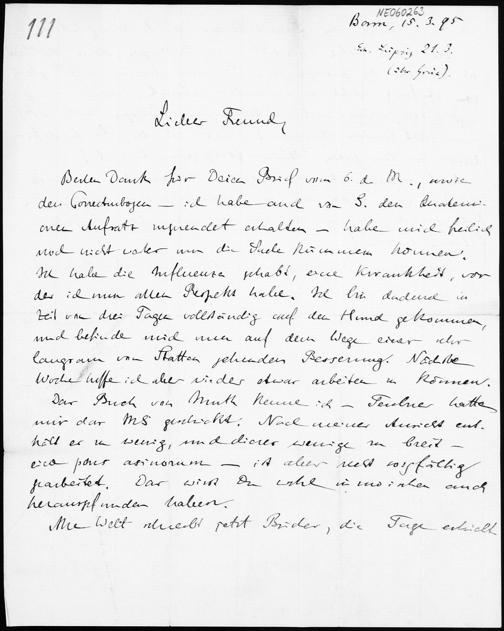 111
NE060263
Bonn, 15.3.95
Em. Leipzig 21.3.
(über Graz).
Lieber Freund,
Besten Dank für Deinen Brief vom 6. d M., sowie
den Correcturbogen – ich habe auch von S. den Quaterni-
onen Aufsatz zugesendet erhalten – habe mich freilich
noch nicht weiter um die Sache kümmern können.
Ich habe die Influenza gehabt, eine Krankheit, vor
der ich nun allen Respekt habe. Ich bin dadurch in
Zeit von drei Tagen vollständig auf den Hund gekommen,
und befinde mich nun auf dem Wege einer sehr
langsam von Statten gehenden Besserung. Nächste
Woche hoffe ich aber wieder etwas arbeiten zu können.
Das Buch von Muth kenne ich – Teubner hatte
mir das MS geschickt. Nach meiner Ansicht ent-
hält es zu wenig, und dieses wenige zu breit –
ein pons asinorum – ist aber recht sorgfältig
gearbeitet. Das wirst Du wohl inzwischen auch
herausgefunden haben.
Alle Welt schreibt jetzt Bücher, die Tage